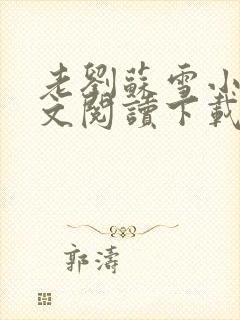 老劉蘇雪小
文閱讀下載
郭濤